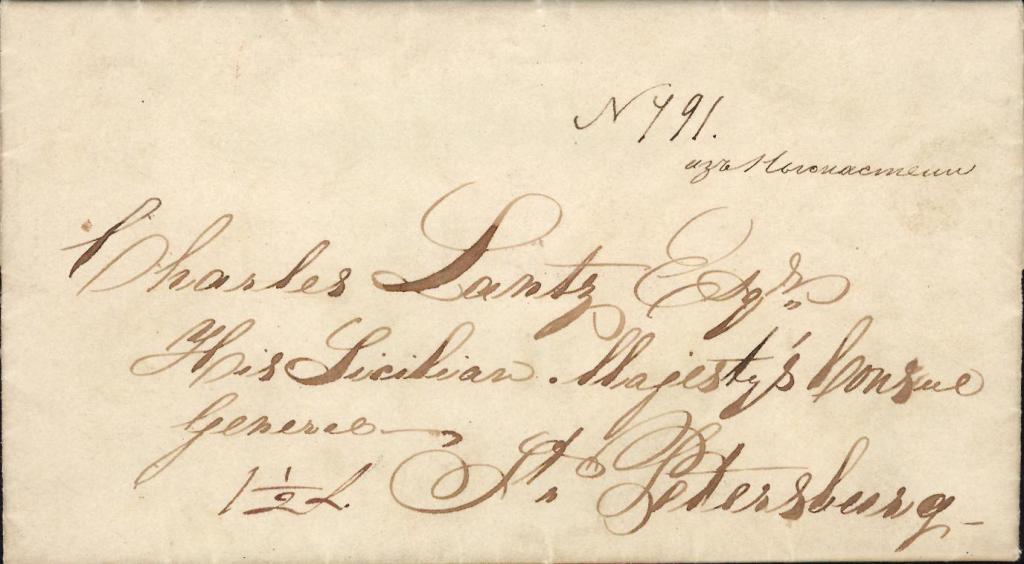 N 791.
изъ Нюкастеля
Charles Lantz Esqr
His Sicilian Majesty's Consul
General
1 1/2 L. St. Petersburg